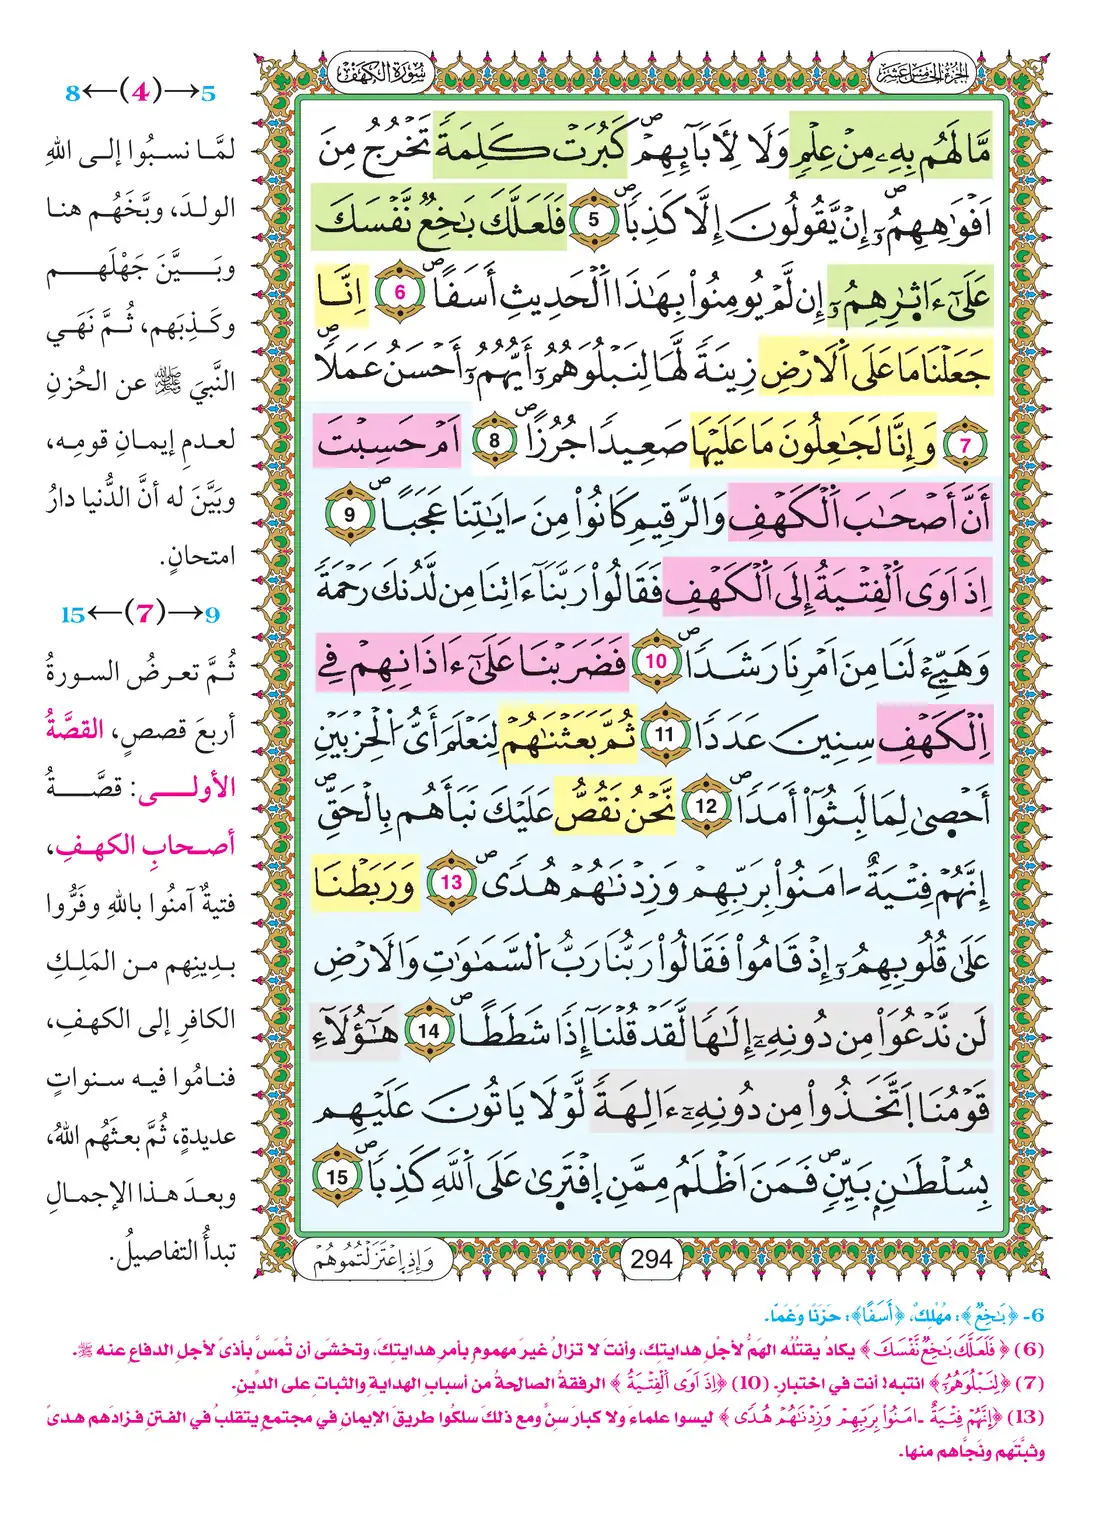 الجزء الخامس عشر
سورة الكهف
مَّا لَهُم بِهِۦ مِنْ عِلْمٍ وَلَا لِأَبَآئِهِمْ كَبُرَتْ كَلِمَةً تَخْرُجُ مِنَ
اَفْوَٰهِهِمُۥٓ إِنْ يَّقُولُونَ إِلَّا كَذِبًا 5 فَلَعَلَّكَ بَٰخِعٌ نَّفْسَكَ
عَلَىٰٓ ءَاثٰ۪رِهِمُۥٓ إِن لَّمْ يُومِنُوا۟ بِهَٰذَا اَ۬لْحَدِيثِ أَسَفًا 6 اِنَّا
جَعَلْنَا مَا عَلَى اَ۬لَارْضِ زِينَةً لَّهَا لِنَبْلُوَهُمُۥٓ أَيُّهُمُۥٓ أَحْسَنُ عَمَلًا
7 وَإِنَّا لَجَٰعِلُونَ مَا عَلَيْهَا صَعِيدًا جُرُزًا 8 اَمْ حَسِبْتَ
أَنَّ أَصْحَٰبَ اَ۬لْكَهْفِ وَالرَّقِيمِ كَانُوا۟ مِنَ ـ ايَٰتِنَا عَجَبًا 9
اِذَ اَوَى اَ۬لْفِتْيَةُ إِلَى اَ۬لْكَهْفِ فَقَالُوا۟ رَبَّنَآ ءَاتِنَا مِن لَّدُنكَ رَحْمَةً
وَهَيِّےْ لَنَا مِنَ اَمْرِنَا رَشَدًا 10 فَضَرَبْنَا عَلَىٰٓ ءَاذَانِهِمْ فِے
اِ۬لْكَهْفِ سِنِينَ عَدَدًا 11 ثُمَّ بَعَثْنَٰهُمْ لِنَعْلَمَ أَىُّ اُ۬لْحِزْبَيْنِ
أَحْصىٰ لِمَا لَبِثُوٓا۟ أَمَدًا 12 نَّحْنُ نَقُصُّ عَلَيْكَ نَبَأَهُم بِالْحَقِّ
إِنَّهُمْ فِتْيَةٌ ـ امَنُوا۟ بِرَبِّهِمْ وَزِدْنَٰهُمْ هُدًى 13 وَرَبَطْنَا
عَلَىٰ قُلُوبِهِمُۥٓ إِذْ قَامُوا۟ فَقَالُوا۟ رَبُّنَا رَبُّ اُ۬لسَّمَٰوَٰتِ وَالَارْضِ
لَن نَّدْعُوَا۟ مِن دُونِهِۦٓ إِلَٰهًا لَّقَدْ قُلْنَآ إِذًا شَطَطًا 14 هَٰٓؤُلَآءِ
قَوْمُنَا اَ۪تَّخَذُوا۟ مِن دُونِهِۦٓ ءَالِهَةً لَّوْلَا يَاتُونَ عَلَيْهِم
بِسُلْطَٰنٍ بَيِّنٍ فَمَنَ اَظْلَمُ مِمَّنِ اِ۪فْتَرىٰ عَلَى اَ۬للَّهِ كَذِبًا 15
وَإِذِ اِ۪عْتَزَلْتُمُوهُمْ
294
5→(4)←8
لمَّا نسبُوا إلى اللهِ
الولدَ، وبَّخَهُم هنا
وبَيَّنَ جَهْلَهم
وكَذِبَهم، ثُمَّ نَهَى
النَّبيَ ﷺ عن الحُزنِ
لعدمِ إيمانِ قومِه،
وبَيَّنَ له أنَّ الدُّنيا دارُ
امتحانٍ.
9→(7)←15
ثُمَّ تعرضُ السورةُ
أربعَ قصصٍ، القصَّةُ
الأولى: قصَّةُ
أصحابِ الكهفِ،
فتيةٌ آمنُوا باللهِ وفَرُّوا
بدِينِهم من المَلِكِ
الكافرِ إلى الكهفِ،
فنامُوا فيه سنواتٍ
عديدةٍ، ثُمَّ بعثَهُم اللهُ،
وبعدَ هذا الإجمالِ
تبدأُ التفاصيلُ.
6- ﴿بَٰخِعٌ﴾: مُهْلِكٌ، ﴿أَسَفًا﴾: حَزَنًا وَغَمًّا.
(6) ﴿فَلَعَلَّكَ بَٰخِعٌ نَّفْسَكَ﴾ يكادُ يقتلُه الهمُّ لأجلِ هدايتِك، وأنتَ لا تزالُ غيرَ مهمومٍ بأمرِ هدايتِكَ، وتخشَى أن تُمَسَّ بأذىً لأجلِ الدفاعِ عنه ﷺ.
(7) ﴿لِنَبْلُوَهُمُۥٓ﴾ انتبه! أنت في اختبارٍ. (10) ﴿اِذَ اَوَى اَ۬لْفِتْيَةُ﴾ الرفقةُ الصالحةُ من أسبابِ الهدايةِ والثباتِ على الدِّينِ.
(13) ﴿إِنَّهُمْ فِتْيَةٌ ـ امَنُوا۟ بِرَبِّهِمْ وَزِدْنَٰهُمْ هُدًى﴾ ليسوا علماءَ ولا كبارَ سنٍّ ومع ذلكَ سلكُوا طريقَ الإيمانِ في مجتمعٍ يتقلبُ في الفتنِ فزادَهم هدىً
وثبَّتَهم ونَجَّاهم منها.